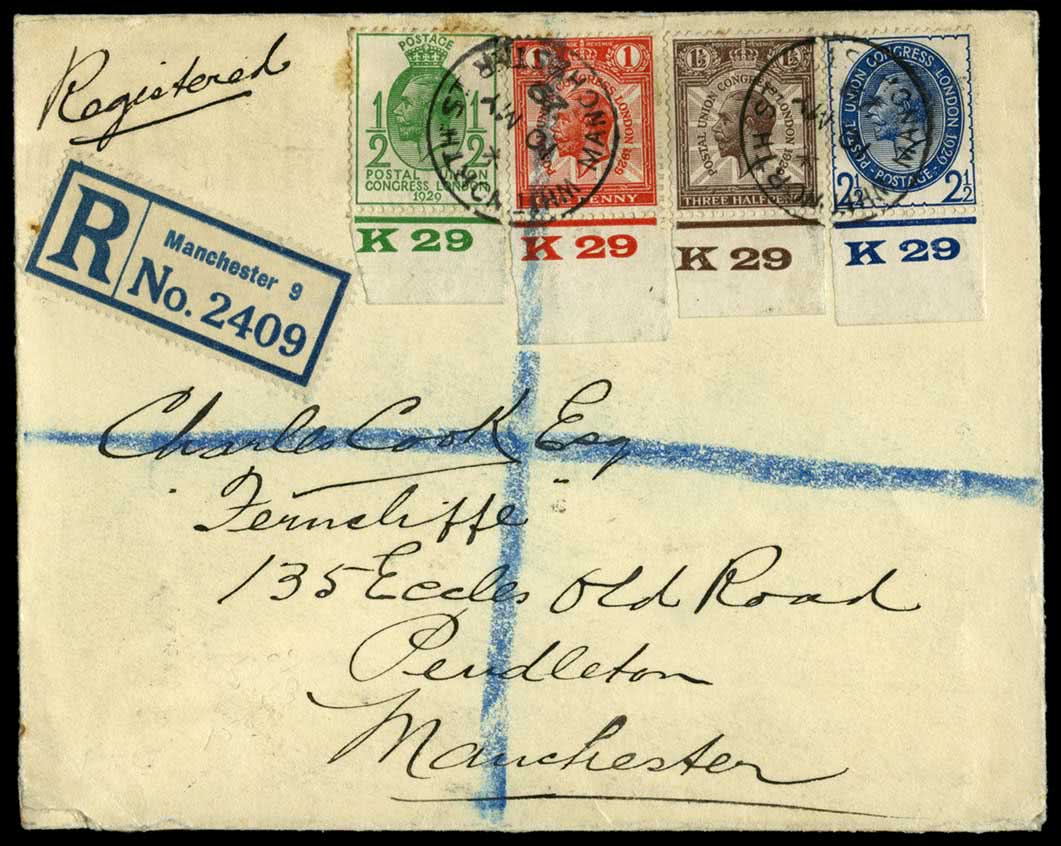 Registered
POSTAGE
1/2 1/2
POSTAL UNION
CONGRESS LONDON
1929
K 29
POSTAGE REVENUE
1 1
POSTAL UNION CONGRESS LONDON 1929
PENNY
K 29
POSTAGE REVENUE
1½ 1½
POSTAL UNION CONGRESS LONDON 1929
THREE HALFPENCE
K 29
POSTAL UNION CONGRESS LONDON 1929
POSTAGE
2½ 2½
K 29
R Manchester 9
No. 2409
Charles Cook Esq
"Ferncliffe"
135 Eccles Old Road
Pendleton
Manchester